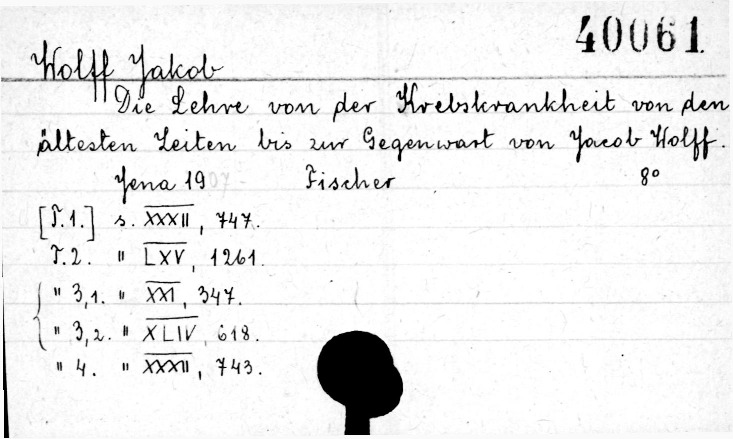 40061
Wolff Jakob
Die Lehre von der Krebskrankheit von den
ältesten Zeiten bis zur Gegenwart von Jacob Wolff.
Jena 1907- Fischer 8°
[T.1.] s. XXXII, 747.
T.2. " LXV, 1261.
" 3,1. " XXI, 347.
" 3,2. " XLIV, 618.
" 4. " XXXII, 743.